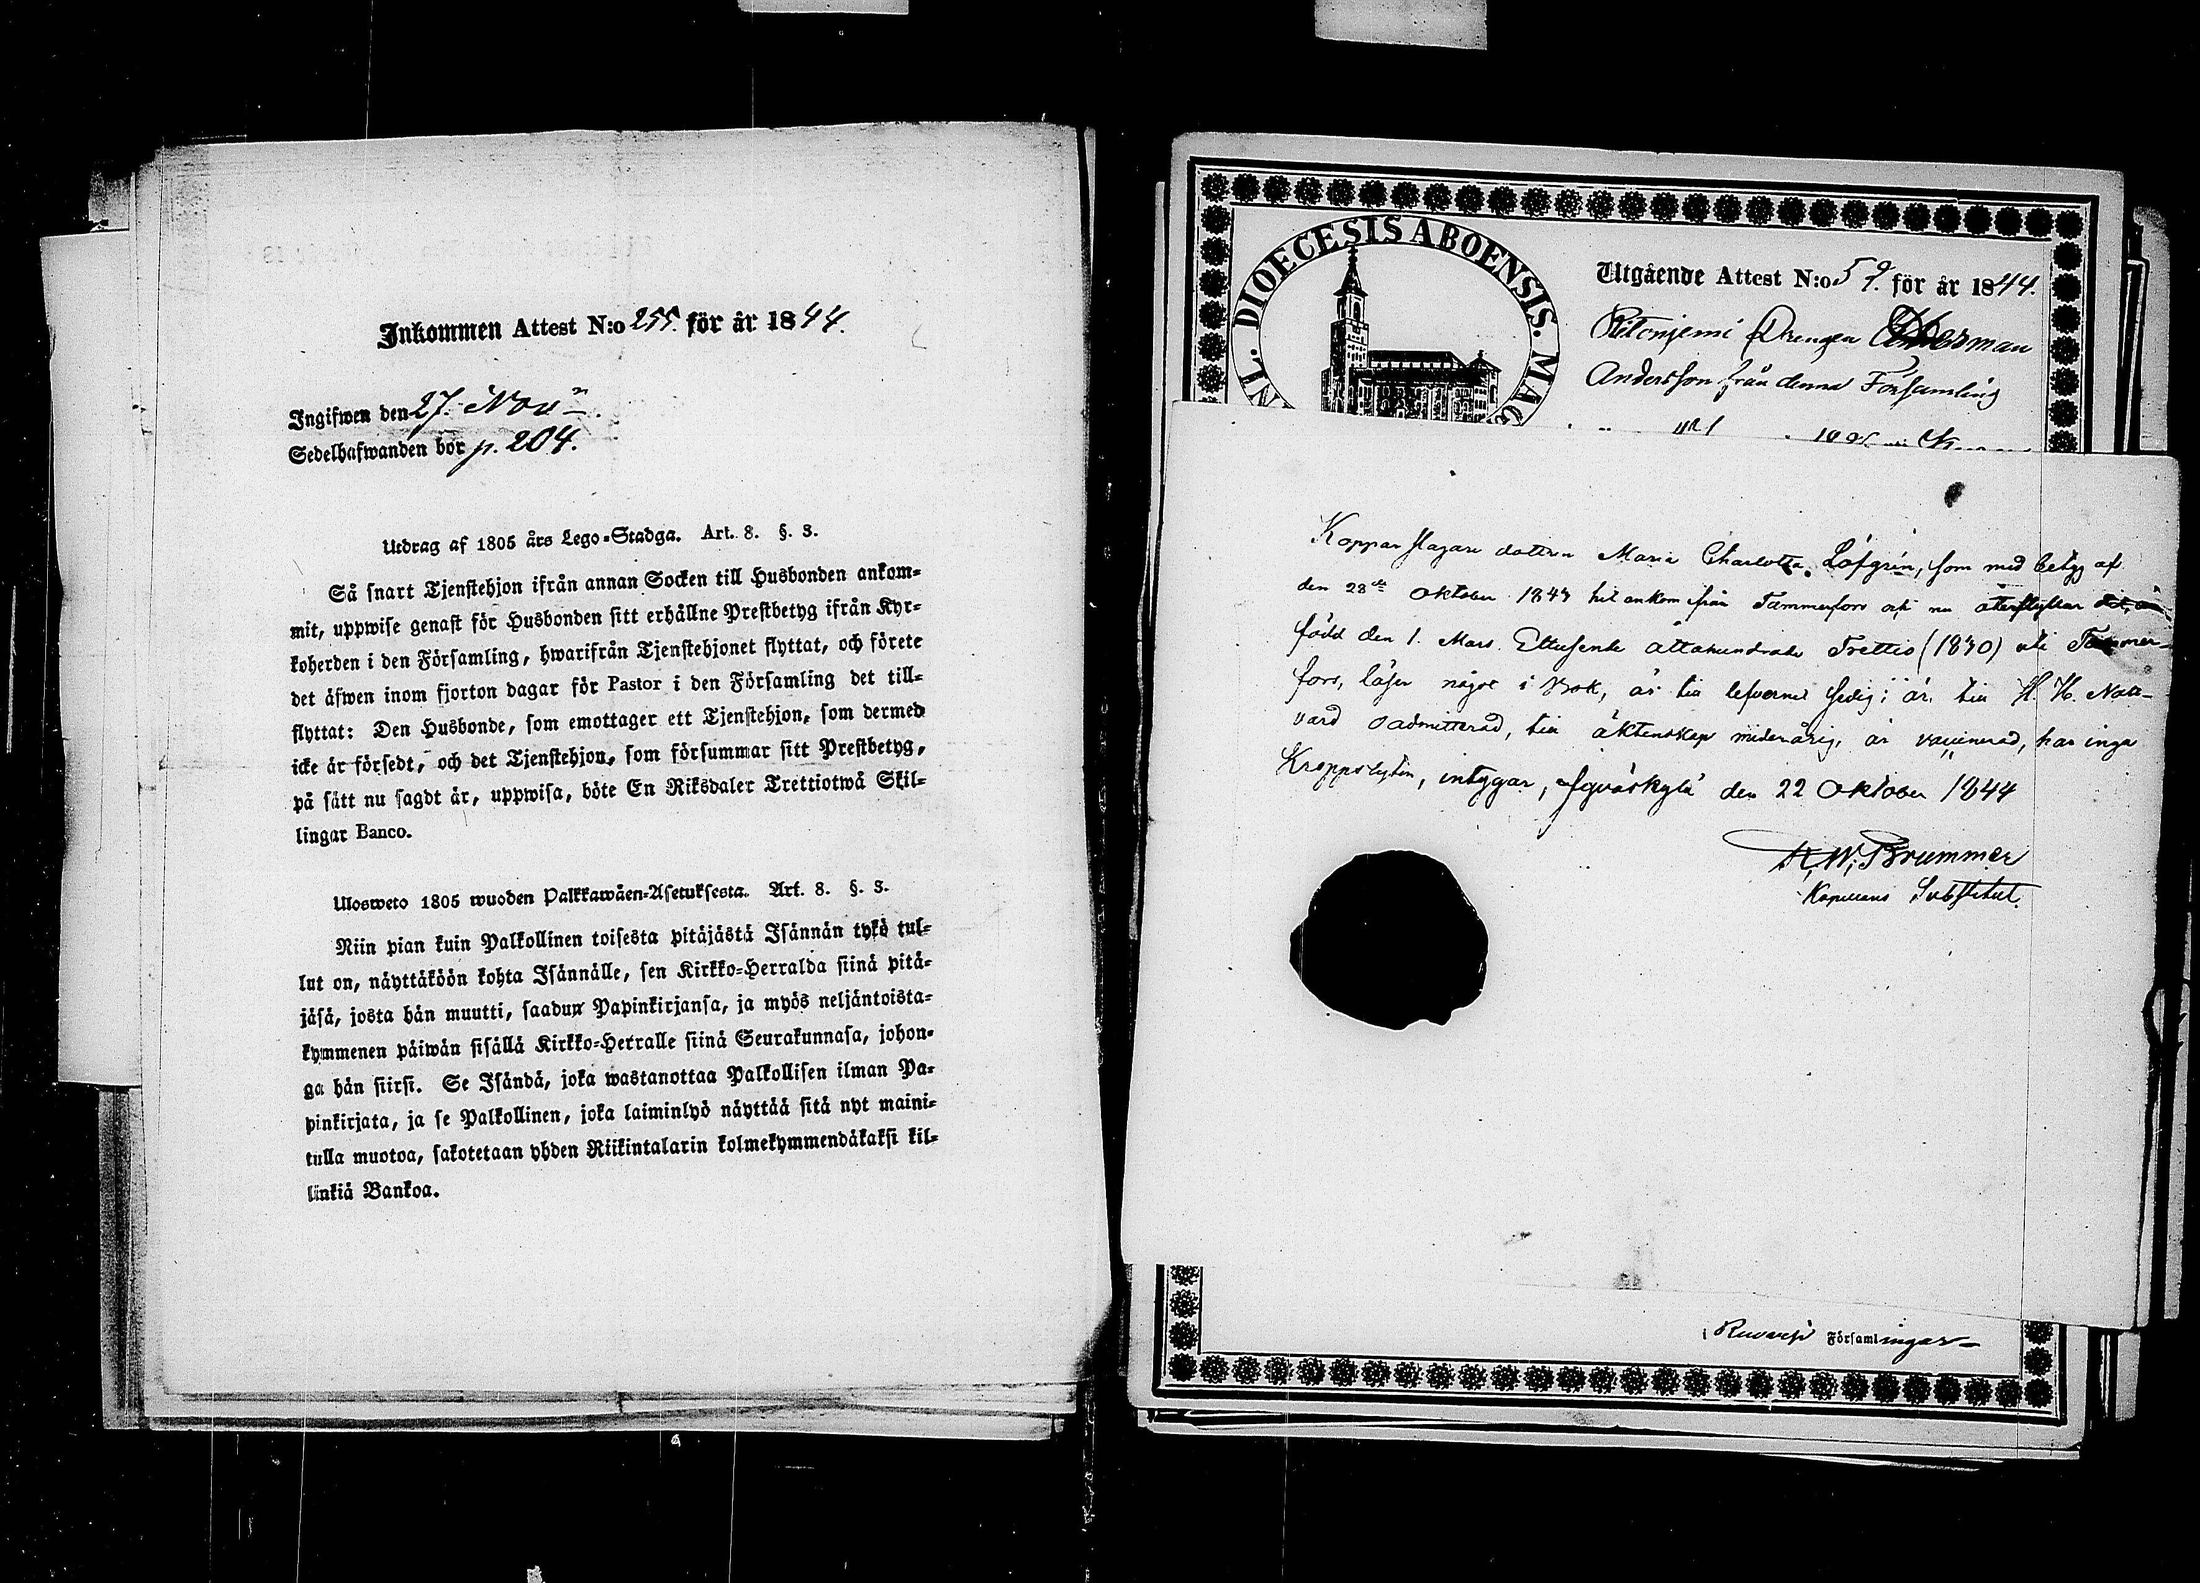 Inkommen Attest N:o 255. för år 1844.
Ingifwen den 27. Nov
Sedelhafwanden bor p. 204.
Utdrag af 1805 års Lego-Stadga. Art. 8. §. 3.
Så snart Tjenstehjon ifrån annan Socken till Husbonden ankom-
mit, uppwise genast för Husbonden sitt erhållne Prestbetyg ifrån Kyr-
koherden i den Församling, hwarifrån Tjenstehjonet flyttat, och förete
det äfwen inom fjorton dagar för Pastor i den Församling det till-
flyttat: Den Husbonde, som emottager ett Tjenstehjon, som dermed
icke är försedt, och det Tjenstehjon, som försummar sitt Prestbetyg,
på sätt nu sagdt är, uppwisa, böte En Riksdaler Trettiotwå Skil-
lingar Banco.
Ulosweto 1805 wuoden Palkkawäen-Asetuksesta. Art. 8. §. 3.
Niin pian kuin Palkollinen toisesta pitäjästä Isännän tykö tul-
lut on, näyttäköön kohta Isännälle, sen Kirkko-Herralda siinä pitä-
jäsä, josta hän muutti, saadun Papinkirjansa, ja myös neljäntoista-
kymmenen päiwän sisällä Kirkko-Herralle siinä Seurakunnasa, johon-
ga hän siirsi. Se Isändä, joka wastanottaa Palkollisen ilman Pa-
pinkirjata, ja se Palkollinen, joka laiminlyö näyttää sitä nyt maini-
tulla muotoa, sakotetaan yhden Riikintalarin kolmekymmendäkaksi kil-
linkiä Bankoa.
DIOECESIS ABOENSIS. MAG
Utgående Attest N:o 59. för år 1844.
Drengen Herman
Andersson från denna Församling
Kopparslagare dottren Maria Charlotta Löfgrén, som med betyg af
den 28de Oktober 1843 hit ankom från Tammerfors och nu återflyttar
född den 1. Mars Ettusende åttahundrade Trettio (1830) uti Tammer-
fors, läser något i Bok, är till lefvernet sedig; är till H. H. Natt-
vard oadmitterad, till äktenskap minderårig, är vaccinerad, har inga
Kroppslyten, intygar, Jyväskylä den 22 Oktober 1844
K. W. Brummer
Kapellans Substitut.
i Ruovesi Församlingar